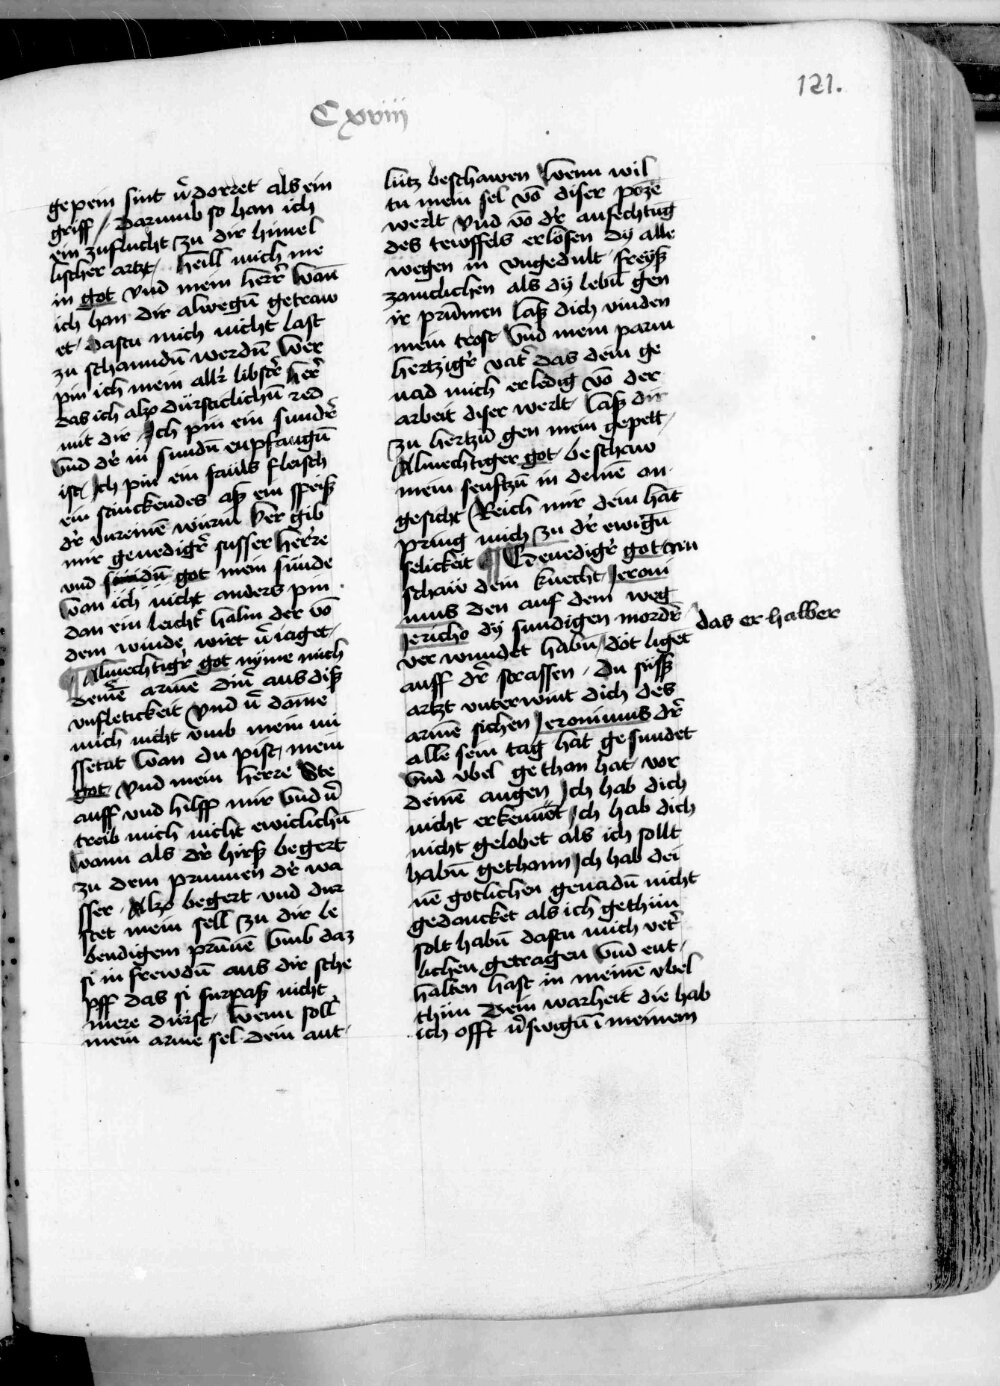 121.
Cxviii
gepein sint v̄dorret als ein
griff / Darumb so han ich
ein zuflucht zu dir himel
lischer artzt / heill mich me
in got vnd mein herr̄ wan̄
ich han dir alwegn̄ getraw
et / dastu mich nicht last
zu schanndn̄ werdn̄ wer
pin ich mein allr̄ libstr̄ her̄
das ich also dürsticlichn̄ red
mit dir / Ich pin ein sundr̄
vnd dr̄ in sundn̄ enpfangn̄
ist / Ich pin ein fauls fleisch
ein stinckendes asz ein speisz
dr̄ vnreinē würm h̄er gib
mir genedigr̄ susser herre
vnd got mein sünde
wan ich nicht anders pin
dan ein leicht halm der vō
dem winde wirt v̄iaget /
Almechtigr̄ got nÿme mich
deinē armē dinr̄ aus disz
vnfletickeit vnd v̄dame
mich nicht vmb mein mi
ssetat wan du pist / mein
got vnd mein herre Ste
auff vnd hilff mir vnd v̄
treib mich nicht ewiclichn̄
wann als dr̄ hirsz begert
zu dem prunnen dr̄ wa
sser / Also begert vnd dur
stet mein sell zu dir le
bendigem prunē vmb daz
si in frewdn̄ aus dir sche
pff das si furpasz nicht
mere dürst / wenn soll
mein arme sel dein ant
lütz beschawen wenn wil
tu mein sel vō diser poze
werlt vnd vō dr̄ anfechtūg
des tewffels erlösen dÿ alle
wegen in vngedult freÿsz
zamclichen als dÿ lebn̄ gen
ir prūmen lasz dich vinden
mein trost vnd mein parm
hertzigr̄ vatr̄ das dein ge
nad mich erledig vō der
arbeit diser werlt / lasz dir
zu hertzn̄ gen mein gepett /
Almechtiger got beschaw
mein seuftzn̄ in deinē an
gesicht / Reich mir dein hāt
pring mich zu dr̄ ewign̄
selickeit ¶ Genedigr̄ got nu
schaw dein knecht Jeroni
mus den auf dem weg
Jericho dÿ sundigen mordr̄
verwundet habn̄ / das er halber
döt liget
auff dr̄ strassen / du süssz
artzt vnterwint dich des
armē sichen Jeronimus dr̄
alle sein tag hat gesundet
vnd vbel gethan hat vor
deinē augen Ich hab dich
nicht erkennet Ich hab dich
nicht gelobet als ich sollt
habn̄ gethann Ich hab dei
nē gotlichen genadn̄ nicht
gedancket als ich gethūn
solt habn̄ dastu mich vetr̄
lichen getragen vnd ent /
halten hast in meinē vbel
thūn Dein warheit die hab
ich offt v̄swign̄ ī meinem